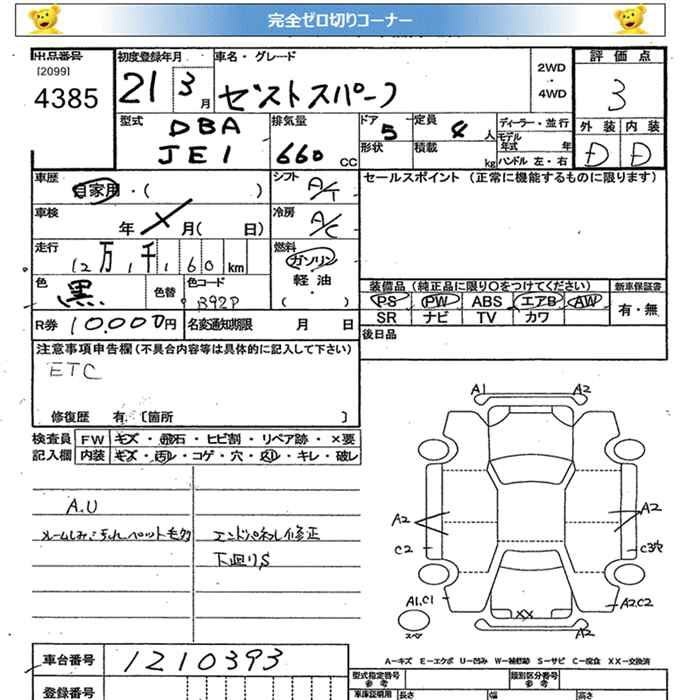 完全ゼロ切りコーナー
出品番号
[2099]
4385
初度登録年月
21 3 月
車名・グレード
ゼストスパーク
2WD
・
4WD
評価点
3
型式
DBA
JE1
排気量
660 CC
ドア 5
定員 4 人
形状
積載 kg
ディーラー・並行
モデル年式 年
ハンドル 左・右
外装 内装
D D
車歴
自家用・( )
シフト
A/T
セールスポイント (正常に機能するものに限ります)
車検
年 月( 日)
冷房
A/C
走行
12万1千160km
燃料
ガソリン
軽油
( )
色
黒
色替
色コード
B92P
装備品 (純正品に限り○をつけてください)
新車保証書
PS PW ABS エアB AW
有・無
SR ナビ TV カワ
R券 10,000円
名変通知期限 月 日
後日品
注意事項申告欄(不具合内容等は具体的に記入して下さい)
ETC
修復歴 有.〔箇所 〕
検査員
記入欄
FW キズ・飛石・ヒビ割・リペア跡・×要
内装 キズ・汚れ・コゲ・穴・スレ・キレ・破レ
A.U
エンドパネル修正
下廻りS
A1 A2
A2 A2
C2 C3穴
A1,C1 A2,C2
スペア
XX
A2
車台番号
1210393
A－キズ E－エクボ U－凹み W－補修跡 S－サビ C－腐食 XX－交換済
登録番号
型式指定番号
参考
類別区分番号
参考
車庫証明用
長さ 幅 高さ